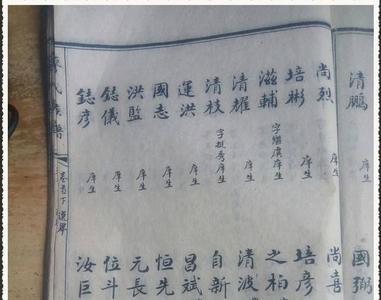 清鵬 庠生
國弼
尚烈 庠生
尚喜
培彬 庠生
培彥
滋輔 字繼虞庠生
之柏
清耀 庠生
清波
清枝 字挺秀庠生
自新
運洪 庠生
昌斌
國志 庠生
恒先
洪監 庠生
元長
鋕儀 庠生
位斗
鋕彦 庠生
汝巨
氏族譜
卷首下 選舉